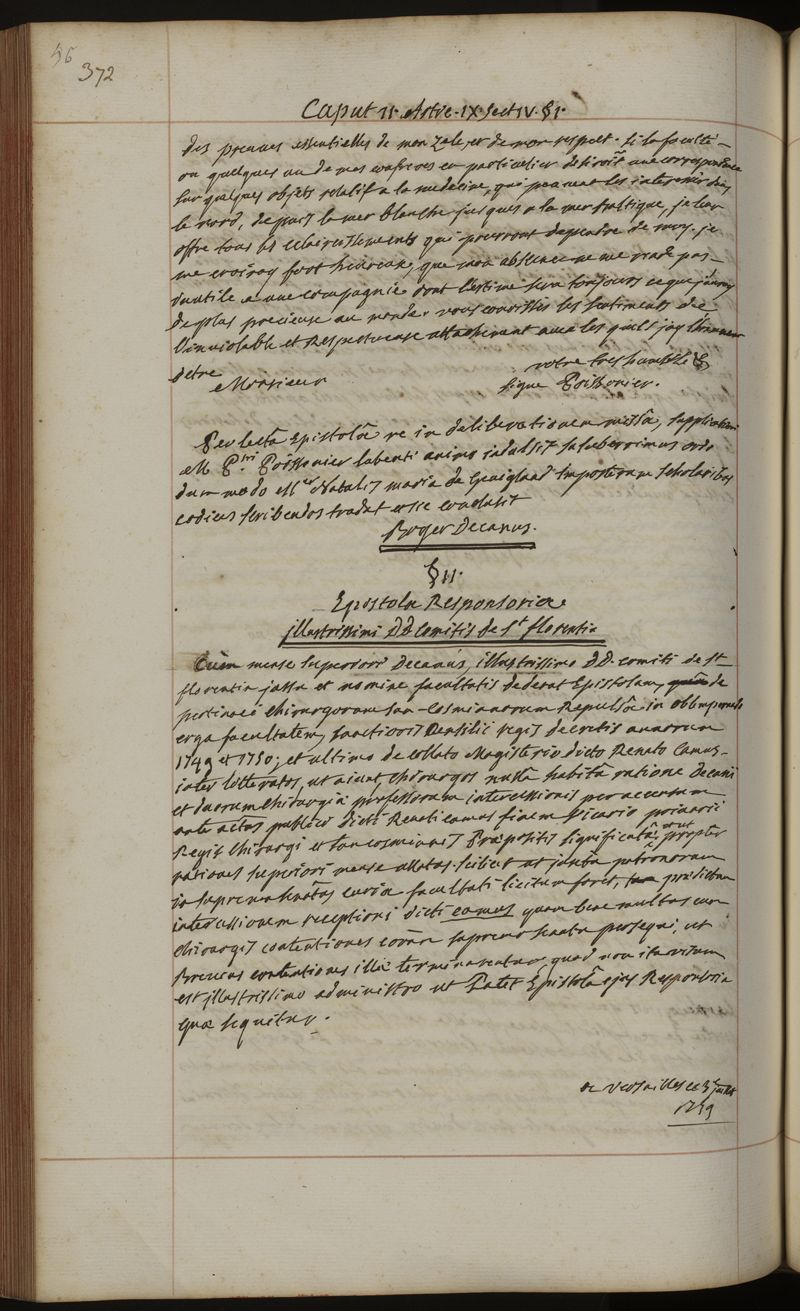 56
372
Caput 11. Artic. IX. Sect IV. §1.
des preuves essentielles de mon zele et de mon respect. si la faculté
ou quelques un de mes confreres en particulier desiroit une correspondance
sur quelques objets relatif a la medecine, qui peuvent les interesser dans
le nord, depuis la mer blanche jusques a la mer baltique, je leur
offre tous les eclaircissements qui pourront dependre de moy. je
me croiray fort heureux, que mon absence ne me rende pas
inutile a une compagnie dont l'estime sera toujours ce que j'auray
de plus precieux au monde. vous connoisses les sentiments de
l'inviolable et respectueux attachement avec les quels j'ay l'honneur
d'etre
Monsieur
votre tres humble &
signe Poissonier.
Per lectâ Epistolâ re in deliberationem missâ, supplicationi
M. Poissonier lubenti animo indulsit saluberrimus ordo
dum modo M. Natalis maria de Gevigland Scholaribus
codices scribendos tradat et sic conclusit
Boyer Decanus.
§ 11.
Epistola Responsoria
illustrissimi DD Comitis de St florentin
Cum mense superiori Decanus, illustrissimo DD. comiti de st
florentin jussu et nomine facultatis dederat Epistolam, de
pertinaci chirurgorum san-Cosmianorum Repulsâ in
erga facultatem, sancitoris Consilii regis decretis annorum
1749 et 1750; et ultimo de collato Magisterio dicto Renato Camus
inter litteratos, ut aiunt, chirurgos nulla habitâ ratione decani
et duorum chirurgiæ professorum intercessionis per
ante actus publici dicti Renati camus finem Vicario primarii
Regis Chirurgi et san cosmianis Præpositis significatâ, et ut propter
rationes superiori mense allatas scilicet ut
in suprema senatus curiâ facultati licitum foret, prædictam
intercessionem receptioni dicti camus quam bene multas cum
chirurgis contentiones coram supremo senatu persequi, ut
Breviùs contentiones illæ terminarentur, quod non ita visum
est illustrissimo administro ut Patet Epistolâ ejus Responsoria
quæ sequitur.
a Versailles ce 3e juillet
1759